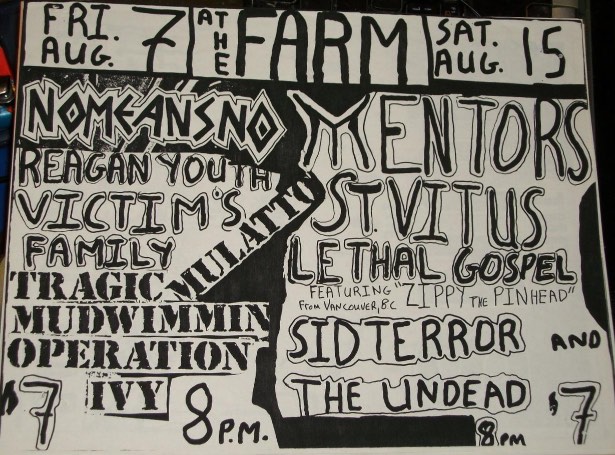 FRI. AUG. 7 AT THE FARM SAT. AUG. 15
NOMEANSNO
REAGAN YOUTH
VICTIM'S
FAMILY
TRAGIC MULATTO
MUDWIMMIN
OPERATION
IVY
$7
8 P.M.
MENTORS
ST. VITUS
LETHAL GOSPEL
FEATURING "ZIPPY THE PINHEAD"
FROM VANCOUVER, BC
SID TERROR AND
THE UNDEAD
$7
8 PM